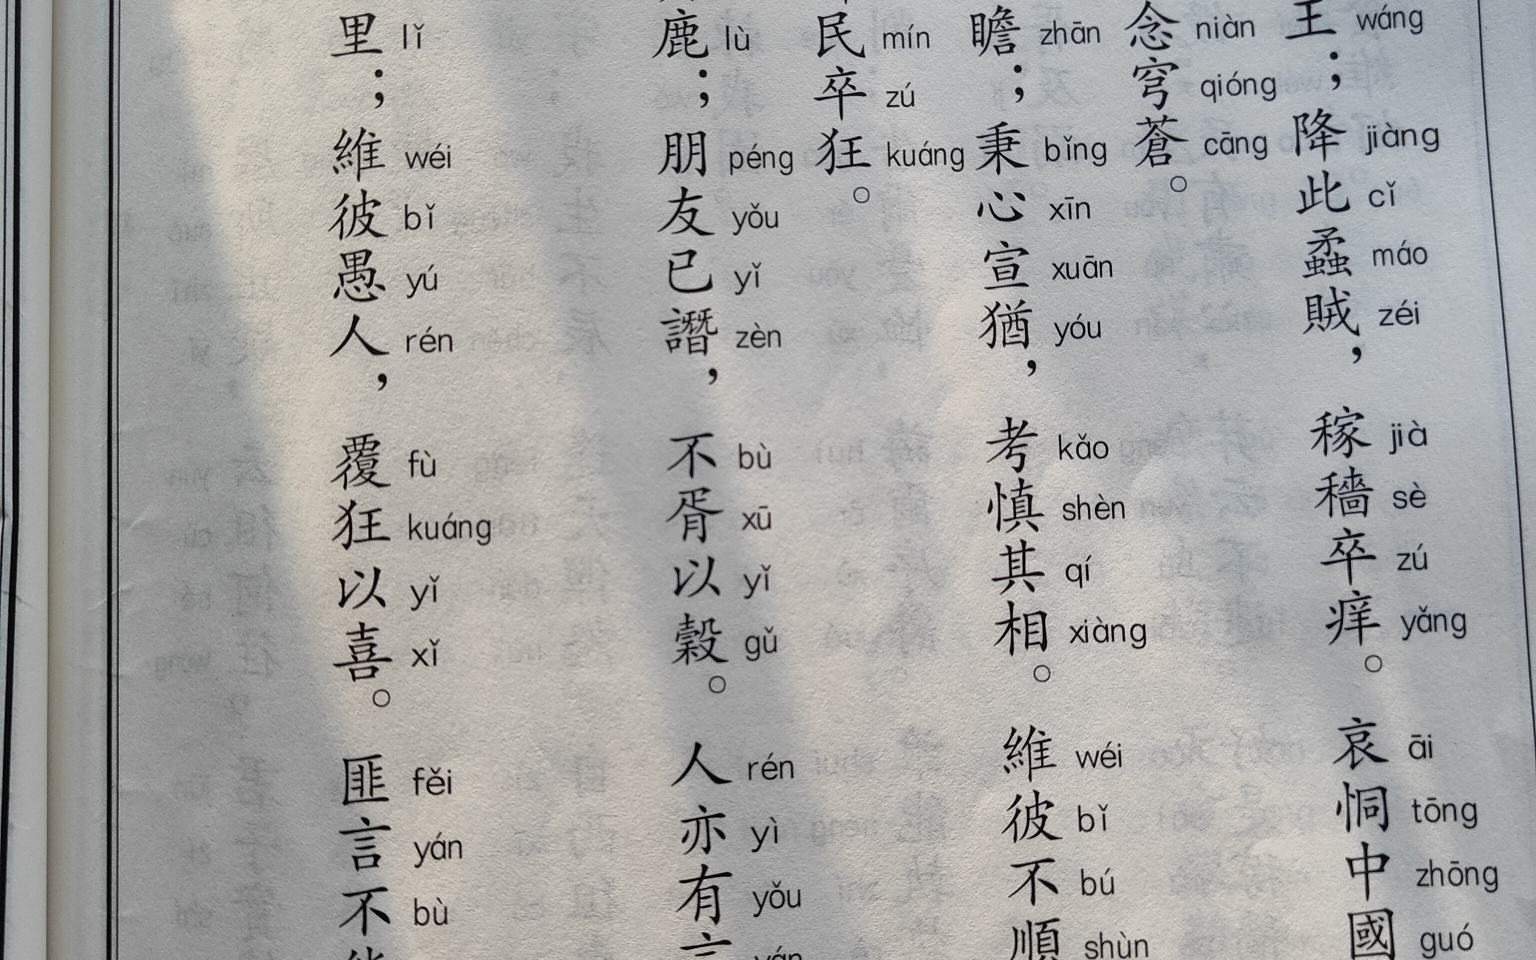 王wáng；降jiàng此cǐ蟊máo賊zéi，稼jià穡sè卒zú痒yǎng。哀āi恫tōng中zhōng國guó
念niàn穹qióng蒼cāng。
瞻zhān；秉bǐng心xīn宣xuān猶yóu，考kǎo慎shèn其qí相xiàng。維wéi彼bǐ不bú順shùn
民mín卒zú狂kuáng。
鹿lù；朋péng友yǒu已yǐ譖zèn，不bù胥xū以yǐ穀gǔ。人rén亦yì有yǒu言yán
里lǐ；維wéi彼bǐ愚yú人rén，覆fù狂kuáng以yǐ喜xǐ。匪fěi言yán不bù